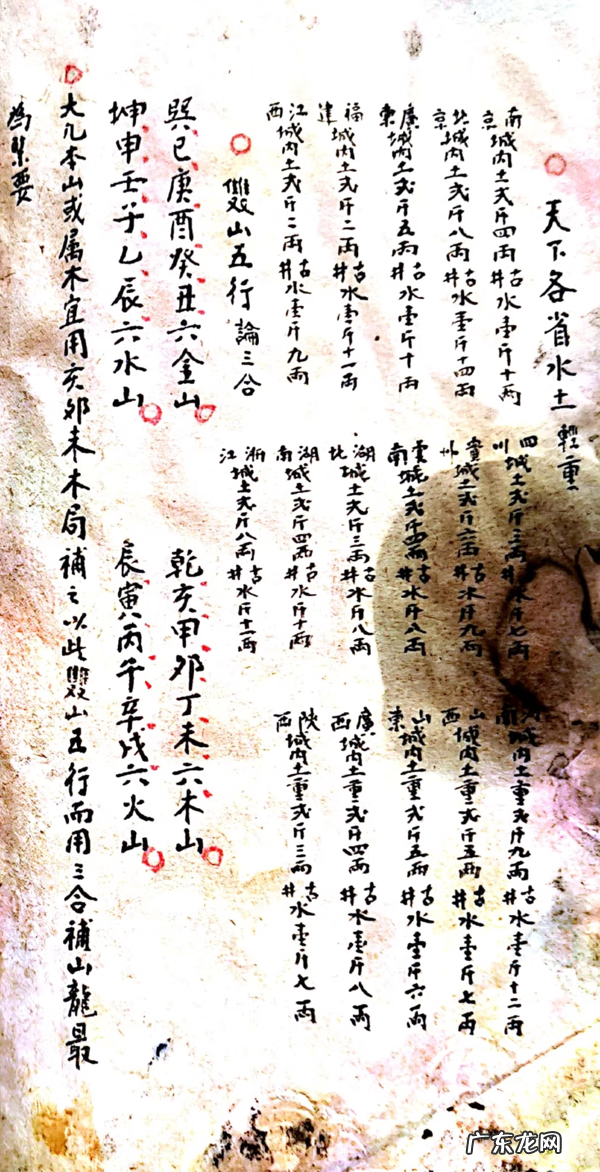 天下各省水土輕重
南京城内土弍斤四兩古井水壹斤十兩
北京城内土弍斤八兩古井水壹斤十四兩
廣東城内土弍斤五兩古井水壹斤十兩
福建城内土弍斤二兩古井水壹斤十一兩
江西城内土弍斤二兩古井水壹斤九兩
四川城土弍斤三兩古井水斤七兩
貴州城土弍斤六兩古井水斤九兩
雲南城土弍斤四兩古井水斤八兩
湖北城土弍斤三兩古井水斤八兩
湖南城土弍斤四兩古井水斤十兩
浙江城土弍斤八兩古井水斤十一兩
河南城内土重弍斤九兩古井水壹斤十二兩
山西城内土重弍斤五兩古井水壹斤七兩
山東城内土重弍斤五兩古井水壹斤六兩
廣西城内土重弍斤四兩古井水壹斤八兩
陝西城内土重弍斤三兩古井水壹斤七兩
雙山五行論三合
巽巳庚酉癸丑六金山
乾亥甲卯丁未六木山
坤申壬子乙辰六水山
辰寅丙午辛戌六火山
大凡本山或属木宜用亥卯未木局補之以此雙山五行而用三合補山龍最
為緊要
广东龙网